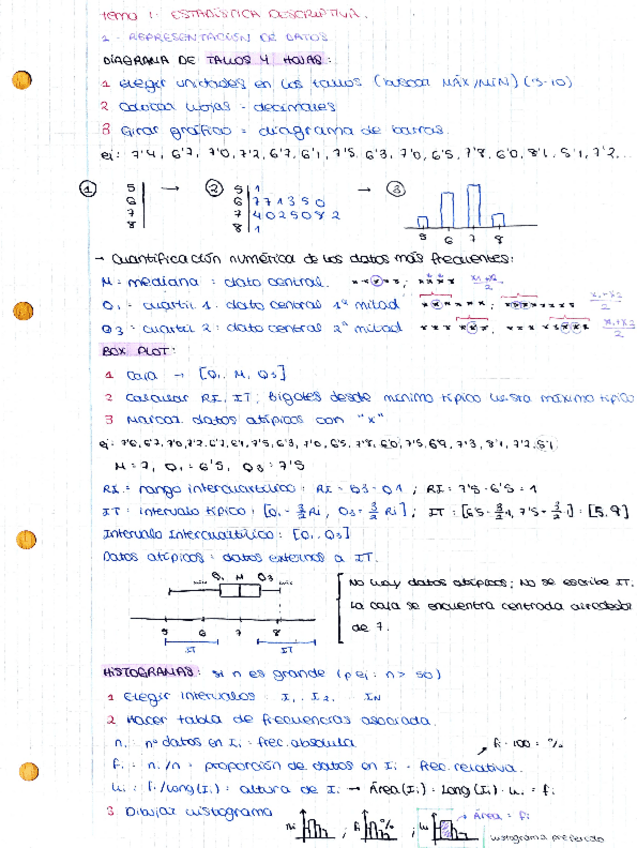 tema 1: ESTADÍSTICA DESCRIPTIVA.
2 - REPRESENTACIÓN DE DATOS
DIAGRAMA DE TALLOS Y HOJAS:
1 Elegir unidades en los tallos (buscar MÁX/MÍN) (5-10)
2 Colocar hojas - decimales
3 Girar gráfico = diagrama de barras.
ej: 7'4, 6'7, 7'0, 7'2, 6'7, 6'1, 7'5, 6'3, 7'0, 6'5, 7'8, 6'0, 8'1, 5'1, 7'2...
1 → 2 → 3
5 5 1
6 6 7 7 1 3 5 0
7 7 4 0 2 5 0 8 2
8 8 1
5 6 7 8
→ Cuantificación numérica de los datos más frecuentes:
M = mediana : dato central.
Q1 = cuartil 1 : dato central 1ª mitad
Q3 = cuartil 2 : dato central 2ª mitad
BOX PLOT:
1 Caja → [Q1, M, Q3]
2 Calcular RI, IT; Bigotes desde mínimo típico hasta máximo típico
3 Marcar datos atípicos con "x"
M = 7, Q1 = 6'5, Q3 = 7'5
RI = rango intercuartílico : RI = Q3 - Q1 ; RI = 7'5 - 6'5 = 1
IT : intervalo típico : [Q1 - 3/2 RI, Q3 + 3/2 RI] ; IT :
Intervalo Intercuartílico : [Q1, Q3]
Datos atípicos : datos externos a IT.
Q1 M Q3
5 6 7 8
IT IT
No hay datos atípicos; No se escribe IT.
La caja se encuentra centrada alrededor
de 7.
HISTOGRAMAS: si n es grande (p ej: n > 50)
1 Elegir intervalos : I1, I2, ... IN
2 Hacer tabla de frecuencias asociada.
ni : nº datos en Ii = frec. absoluta
fi · 100 = %
fi = ni/n = proporción de datos en Ii = frec. relativa.
hi = fi/long(Ii) = altura de Ii → Área(Ii) = Long(Ii) · hi = fi
3 Dibujar histograma
ni ; fi % ; hi → Área = fi
histograma preferido